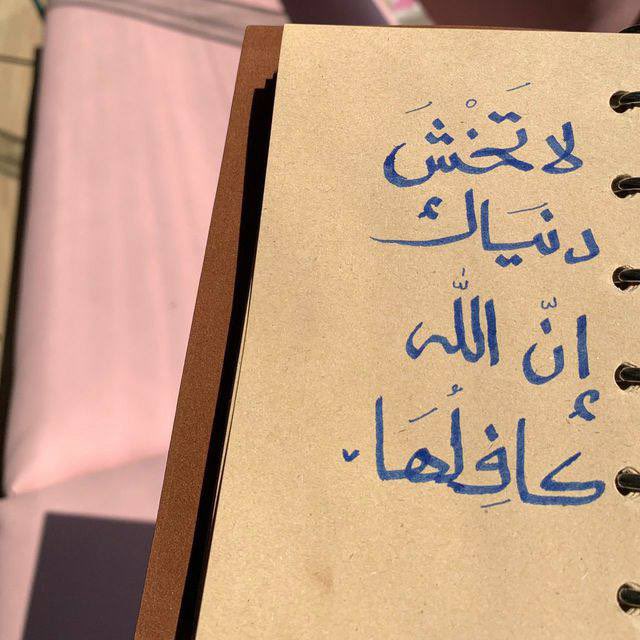 لَا تَخْشَ
دنيَاك
انّ اللّٰه
كافِلُهَا